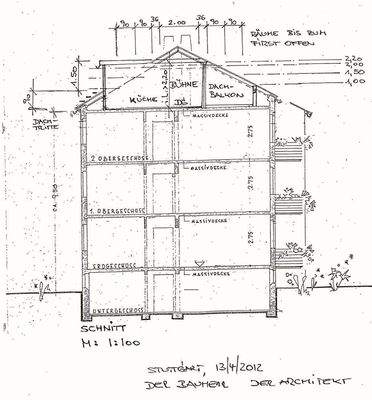 36 36
90 90 2.00 90 90
RÄUME BIS ZUM
FIRST OFFEN
2,20
2,00
1,50
1,00
1.50
90
2,20
KÜCHE
BÜHNE
DG
DACH-
BALKON
DACH-
TRITTE
MASSIVDECKE
2.75
2 OBERGESCHOSS
MASSIVDECKE
2.75
1. OBERGESCHOSS
MASSIVDECKE
2.75
ERDGESCHOSS
MASSIVDECKE
UNTERGESCHOSS
SCHNITT
M: 1:100
STUTTGART, 13/4/2012
DER BAUHERR DER ARCHITEKT